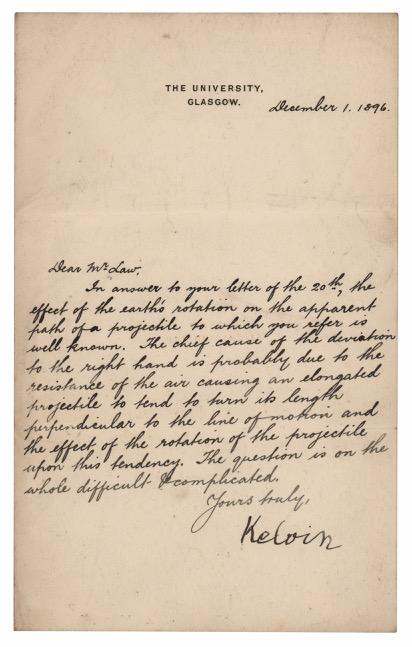 THE UNIVERSITY,
GLASGOW.
December 1. 1896.
Dear Mr Law,
In answer to your letter of the 20th, the
effect of the earth's rotation on the apparent
path of a projectile to which you refer is
well known. The chief cause of the deviation
to the right hand is probably due to the
resistance of the air causing an elongated
projectile to tend to turn its length
perpendicular to the line of motion and
the effect of the rotation of the projectile
upon this tendency. The question is on the
whole difficult & complicated.
Yours truly,
Kelvin